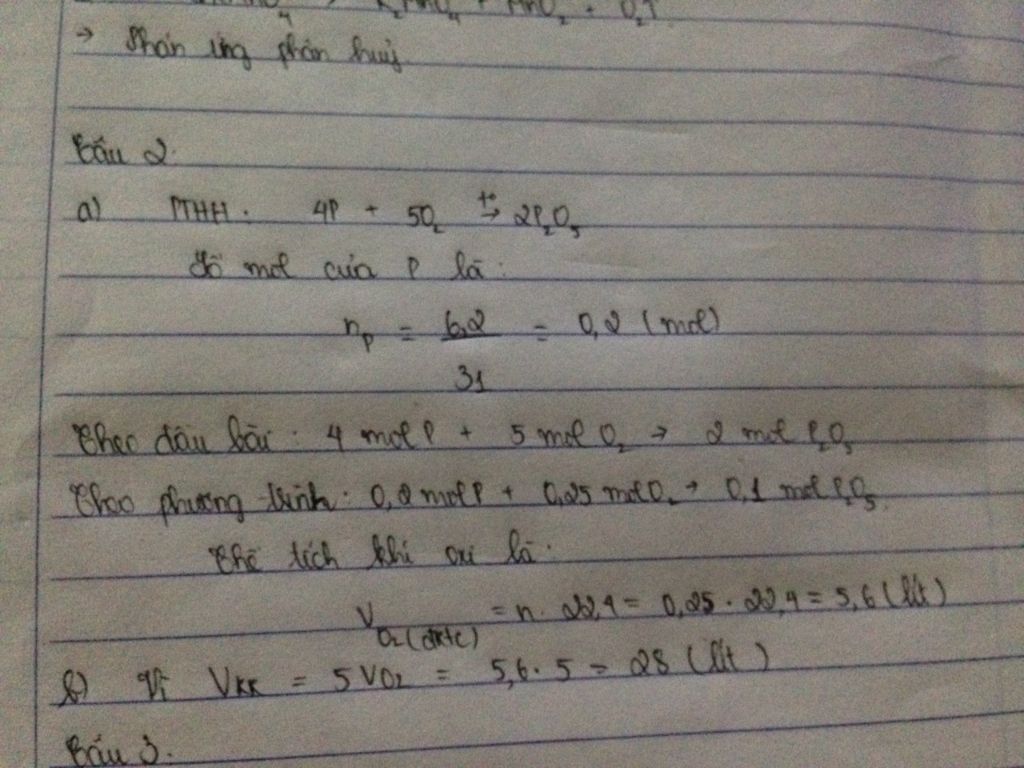 K₂MnO₄ + MnO₂ + O₂↑
→ Phản ứng phân huỷ.
Câu 2.
a) PTHH: 4P + 5O₂ t°→ 2P₂O₅
Số mol của P là:
nP = 6,2/31 = 0,2 (mol)
Theo đầu bài: 4 mol P + 5 mol O₂ → 2 mol P₂O₅
Theo phương trình: 0,2 mol P + 0,25 mol O₂ → 0,1 mol P₂O₅
Thể tích khí oxi là:
V O₂ (đktc) = n . 22,4 = 0,25 . 22,4 = 5,6 (lít)
b) Vì VKK = 5VO₂ = 5,6 . 5 = 28 (lít)
Câu 3.